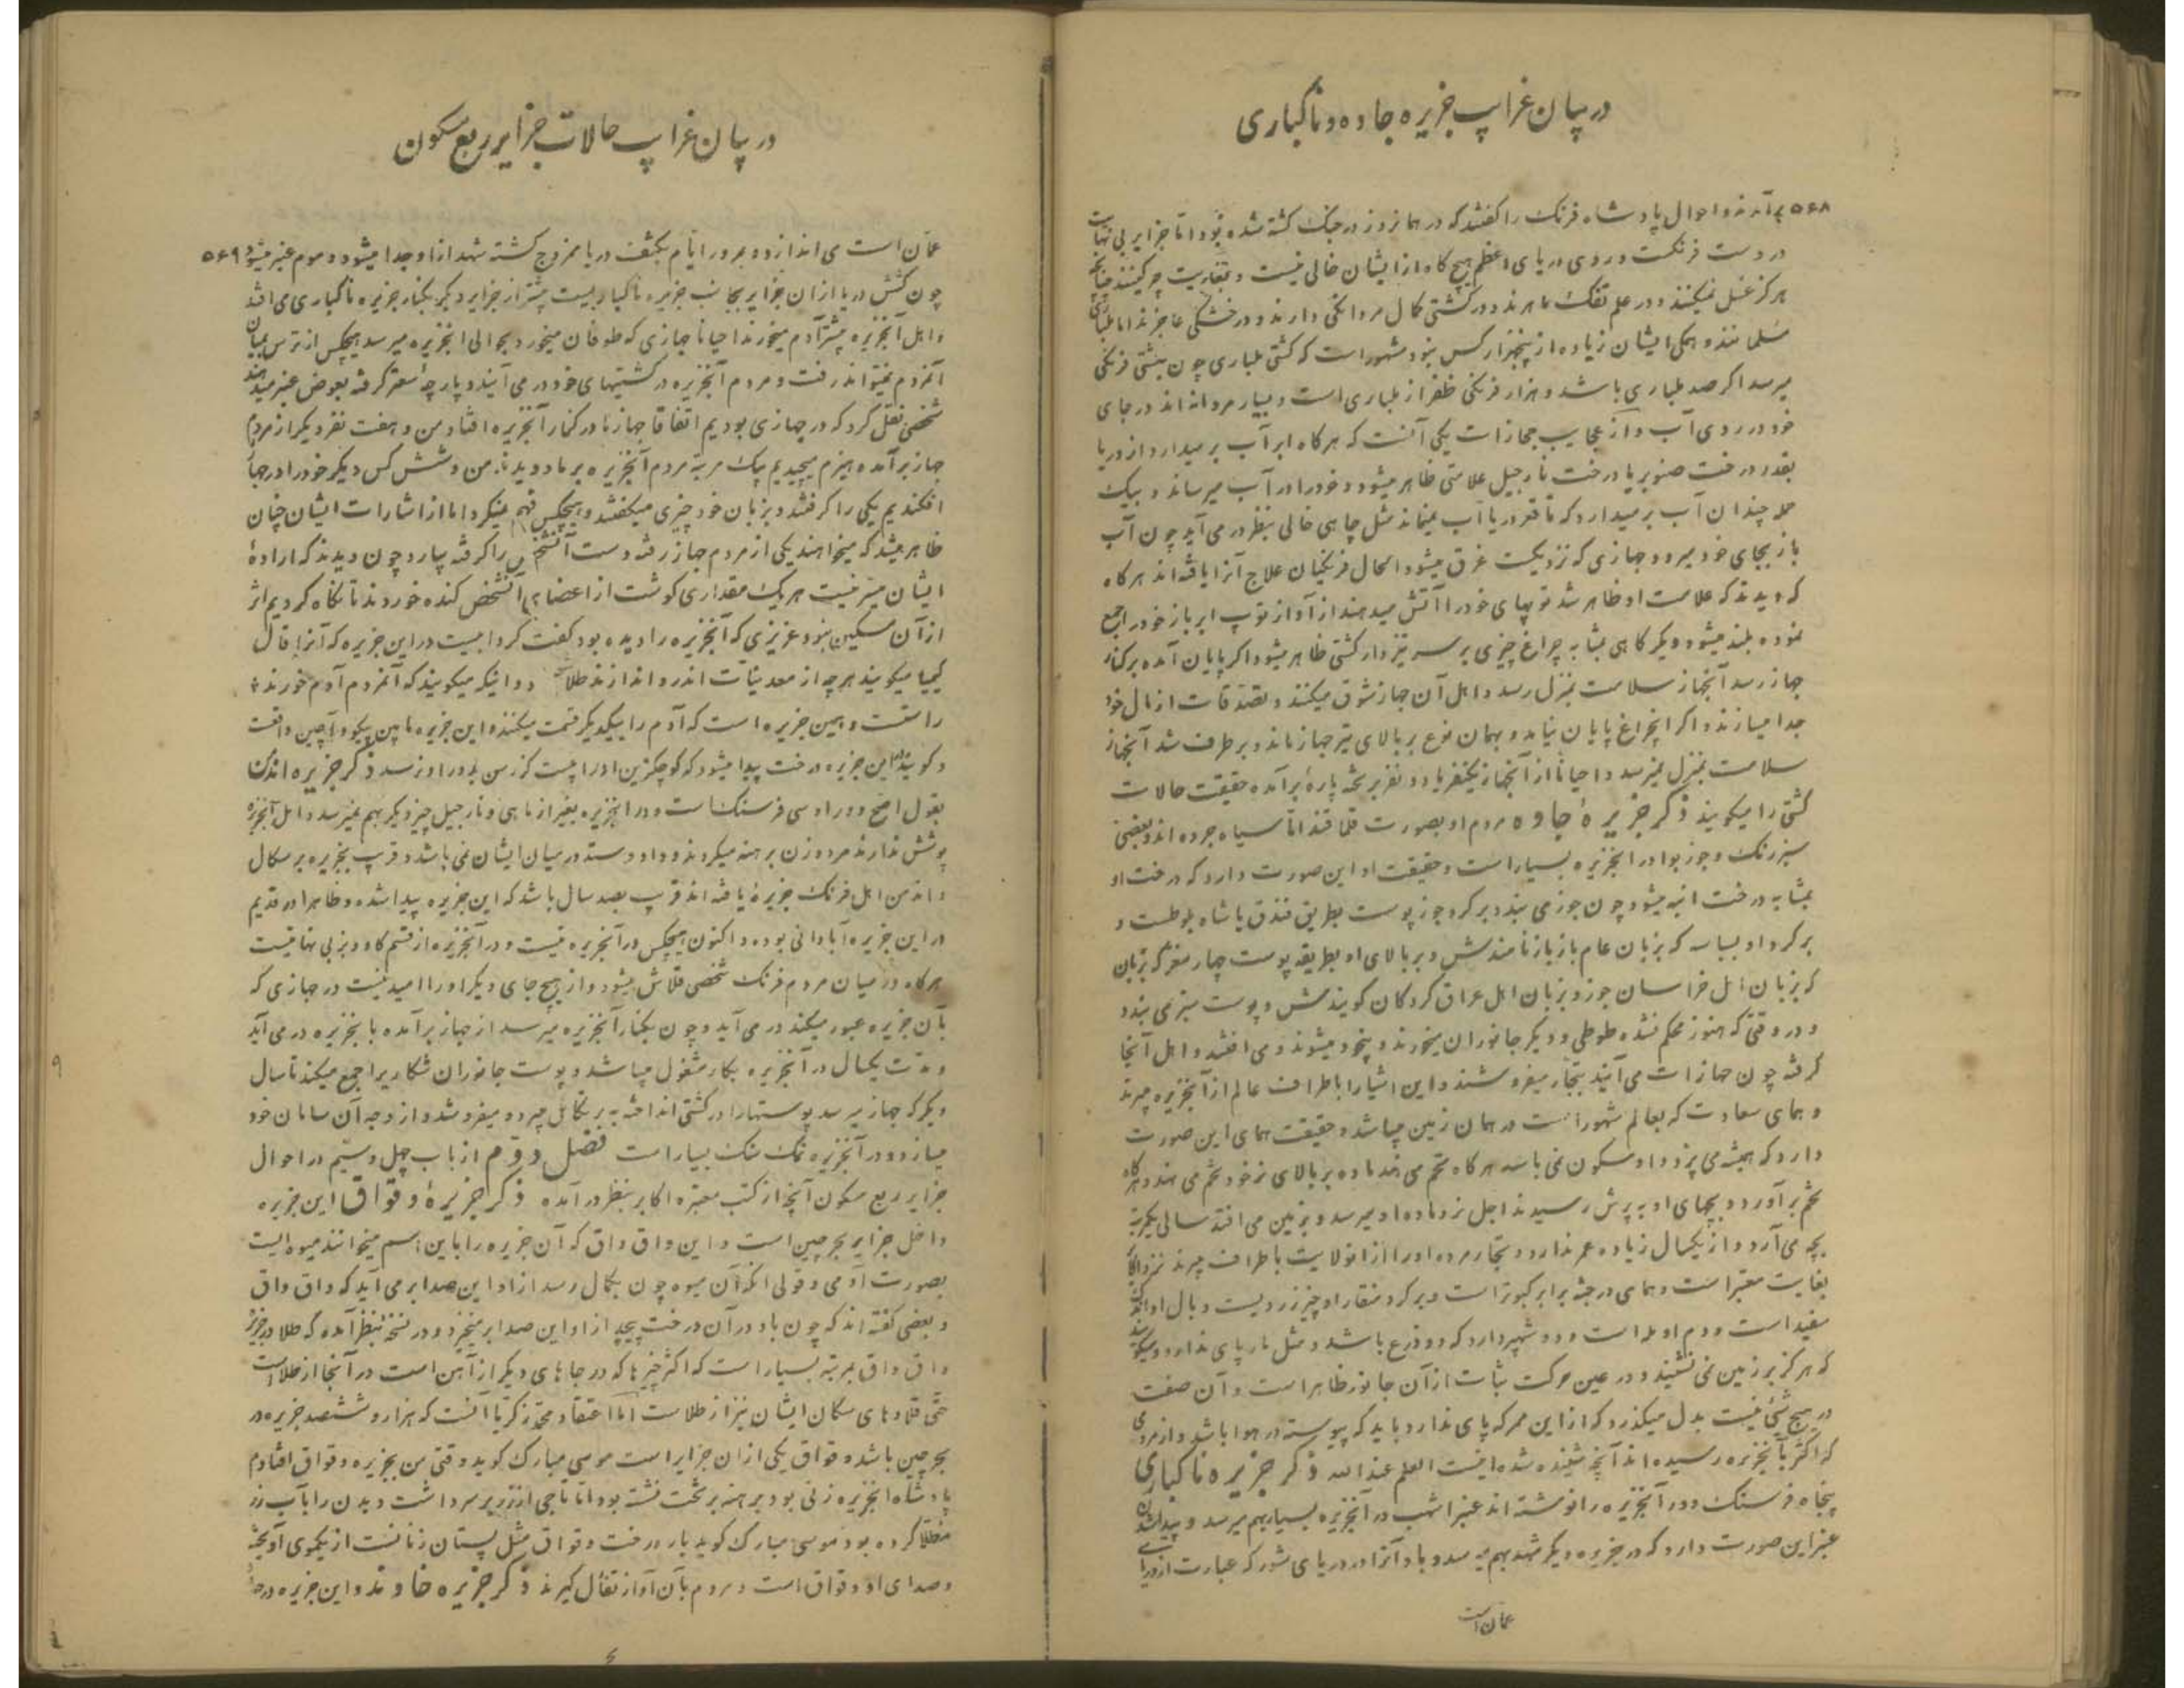 در بیان غرایب جزیره جاوه و ناکباری
۵۶۸ برآمدند و احوال پادشاه فرنک را کفتند که در همانروز در جنک کشته شده بود اما جزایر بی نهایت
در دست فرنکست و روی دریای اعظم هیچ کاه از ایشان خالی نیست و بغایت چرکینند چنانچه
هرکز غسل نمیکنند و در علم تفنک ماهرند و در کشتی کمال مردانکی دارند و در خشکی عاجزند اما ملباری
مسلمانند و همکی ایشان زیاده از پنجهزار کس نبود مشهور است که کشتی ملباری چون بکشتی فرنکی
میرسد اکر صد ملباری باشد و هزار فرنکی ظفر از ملباری است و بسیار مردانه اند در جای
خود در روی آب و از عجایب جهازات یکی آنست که هرکاه ابر آب بر میدارد از دریا
بقدر درخت صنوبر یا درخت نارجیل علامتی ظاهر میشود و خود را در آب میرساند و بیک
حمله چندان آب بر میدارد که تا قعر دریا آب نمیماند مثل چاهی خالی بنظر در می آید چون آب
باز بجای خود میرود جهازی که نزدیکست غرق میشود الحال فرنکیان علاج آنرا یافته اند هرکاه
که دیدند که علامت او ظاهر شد توپهای خود را آتش میدهند از آواز توپ ابر باز خود را جمع
نموده بلند میشود و دیکر کاهی بمشابه چراغ چیزی بر سر تیر دار کشتی ظاهر میشود اکر پایان آمده بر کنار
جهاز رسد آنجهاز سلامت بمنزل رسد و اهل آن جهاز شوق میکنند و تصدقات از مال خود
جدا میسازند و اکر آنچراغ پایان نیاید و بهمان نوع بر بالای تیر جهاز ماند و برطرف شد آنجهاز
سلامت بمنزل نمیرسد و احیاناً از آنجهاز یکنفر یا دو نفر بر تخته پاره برآمده حقیقت حالات
کشتی را میکویند ذکر جزیرهٔ جاوه مردم او بصورت قلماقند اما سیاه جرده اند و بعضی
سبز رنک و جوز بوا در آنجزیره بسیار است و حقیقت او این صورت دارد که درخت او
بمشابه درخت انبه میشود چون جوز می بندد بر کرد جوز پوست بطریق فندق یا شاه بلوطست و
بر کرد او بسباسه که بزبان عام بازباز نامندش و بر بالای او بطریقه پوست چهار مغز که بزبان
که بزبان اهل خراسان جوز و بزبان اهل عراق کردکان کویندش و پوست سبز می بندد
و در وقتی که هنوز محکم نشده طوطی و دیکر جانوران میخورند و پخته میشوند و می افتند و اهل آنجا
کرفته چون جهازات می آیند بتجار میفروشند و این اشیا را باطراف عالم از آنجزیره میبرند
و همای سعادت که بعالم مشهور است در همان زمین میباشد و حقیقت همای این صورت
دارد که همیشه می پرد و او را سکون نمی باشد هرکاه تخم می نهد ماده بر بالای نر خود تخم می نهد و هرکاه
تخم برآورد و بچهای او به پرش رسیدند اجل نر و ماده او میرسد و بزمین می افتد سالی یکمرتبه
بچه می آرد و از یکسال زیاده عمر ندارد و تجار مرده او را از آنولایت باطراف میبرند نزد اکابر
بغایت معتبر است و همای در جثه برابر کبوتر است و بر کرد منقار او چیز زردیست و بال او اندک
سفید است و دم او مله است و دو شهپر دارد که دو ذرع باشد و مثل مار پای ندارد و میکویند
که هرکز بر زمین نمی نشیند و در عین حرکت ثبات از آن جانور ظاهر است و آن صفت
در هیچ شیئی نیست بدل میکذرد که از این ممر که پای ندارد باید که پیوسته در هوا باشد و از مردمی
که اکثر بآنجزیره رسیده اند آنچه شنیده شده اینست العلم عند الله ذکر جزیره ناکباری
پنجاه فرسنک دور آنجزیره را نوشته اند عنبر اشهب در آنجزیره بسیار بهم میرسد و پیدا شدن
عنبر این صورت دارد که در جزیره دیکر شهد بهم میرسد و باد آنرا در دریای شور که عبارت از دریای
عمان است
در بیان غرایب حالات جزایر ربع مسکون
عمان است می اندازد و بمرور ایام بکثف دریا ممزوج کشته شهد از او جدا میشود و موم عنبر میشود ۵۶۹
چون کشش دریا از آن جزایر بجانب جزیره ناکباریست بیشتر از جزایر دیکر بکنار جزیره ناکباری می افتد
و اهل آنجزیره بیشتر آدم میخورند احیاناً جهازی که طوفان میخورد بحوالی آنجزیره میرسد هیچکس از ترس بمیان
آنمردم نمیتواند رفت و مردم آنجزیره در کشتیهای خود در می آیند و پارچهٔ سقر کرفته بعوض عنبر میدهند
شخصی نقل کرد که در جهازی بودیم اتفاقا جهاز ما در کنار آنجزیره افتاد من و هفت نفر دیکر از مردم
جهاز برآمده هیزم میچیدیم بیک مرتبه مردم آنجزیره بر ما دویدند من و شش کس دیکر خود را در جهاز
افکندیم یکی را کرفتند و بزبان خود چیزی میکفتند و هیچکس فهم نمیکرد اما از اشارات ایشان چنان
ظاهر میشد که میخواهند یکی از مردم جهاز رفته دست آنشخص را کرفته بیارد چون دیدند که ارادهٔ
ایشان میسر نیست هر یک مقداری کوشت از اعضای آنشخص کنده خوردند تا نکاه کردیم اثر
از آن مسکین نبود عزیزی که آنجزیره را دیده بود کفت کردابیست در این جزیره که آنرا قال
کیمیا میکویند هر چه از معدنیات اندر و اندازند طلا و دانیکه میکویند که آنمردم آدم خورند
راستست و همین جزیره است که آدم را بیکدیکر قسمت میکنند و این جزیره مابین پیکو و آچین واقعست
و کویند در این جزیره درخت پیدا میشود که کوچکترین او را بیست کز رسن بدور او نرسد ذکر جزیره اندمان
بقول اصح دور او سی فرسنک است و در آنجزیره بغیر از ماهی و نارجیل چیز دیکر بهم نمیرسد و اهل آنجزیره
پوشش ندارند مرد و زن برهنه میکردند و داد و ستد در میان ایشان نمی باشد و قریب بجزیره پرتکال
و اندمن اهل فرنک جزیرهٔ یافته اند قریب بصد سال باشد که این جزیره پیدا شده و ظاهرا در قدیم
در این جزیره آبادانی بوده و اکنون هیچکس در آنجزیره نیست و در آنجزیره از قسم کاو و بز بی نهایتست
هرکاه در میان مردم فرنک شخصی قلاش میشود و از هیچ جای دیکر او را امید نیست در جهازی که
بآن جزیره عبور میکند در می آید و چون بکنار آنجزیره میرسد از جهاز برآمده بآنجزیره در می آید
و مدت یکسال در آنجزیره بکار مشغول میباشد و پوست جانوران شکاریرا جمع میکند تا سال
دیکر که جهاز میرسد پوستها را در کشتی انداخته به پرتکال میرود و میفروشد و از وجه آن سامان خود
میسازد و در آنجزیره نمک سنک بسیار است فصل دوم از باب چهل و سیم در احوال
جزایر ربع مسکون آنچه از کتب معتبره اکابر بنظر درآمده ذکر جزیرهٔ وقواق این جزیره
داخل جزایر بحر چین است و این واق واق که آن جزیره را باین اسم میخوانند میوه ایست
بصورت آدمی و قولی آنکه آن میوه چون بکمال رسد از او این صدا بر می آید که واق واق
و بعضی کفته اند که چون باد در آن درخت پیچد از او این صدا بر میخیزد و در نسخه بنظر آمده که طلا در جزیره
واق واق بمرتبه بسیار است که اکثر چیزها که در جاهای دیکر از آهن است در آنجا از طلا است
حتی قلادهای سکان ایشان نیز از طلاست اما اعتقاد محمد زکریا آنست که هزار و ششصد جزیره در
بحر چین باشد و وقواق یکی از آن جزایر است موسی مبارک کوید وقتی من بجزیره وقواق افتادم
پادشاه آنجزیره زنی بود برهنه بر تخت نشسته بود اما تاجی از زر بر سر داشت و بدن را بآب زر
مطلا کرده بود موسی مبارک کوید بار درخت وقواق مثل پستان زنانست از یکموی آویخته
و صدای او وقواق است و مردم بآن آواز تفأل کیرند ذکر جزیره خاوند و این جزیره در